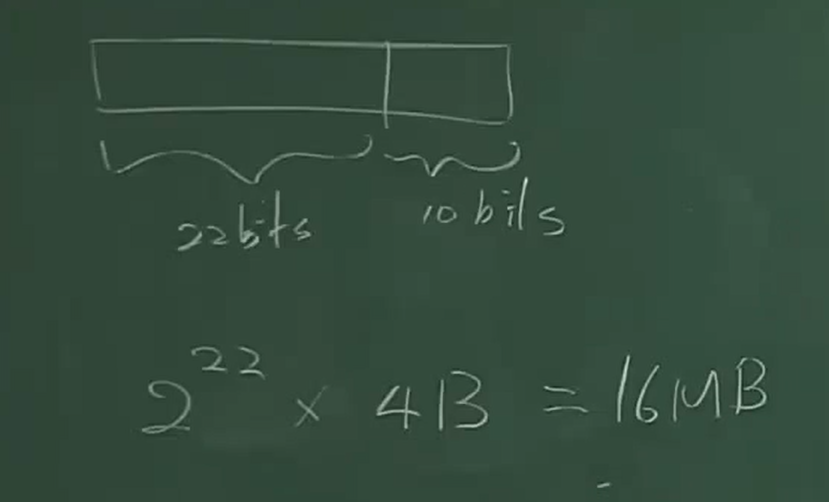 22bits 10 bits
2²² × 4B = 16MB